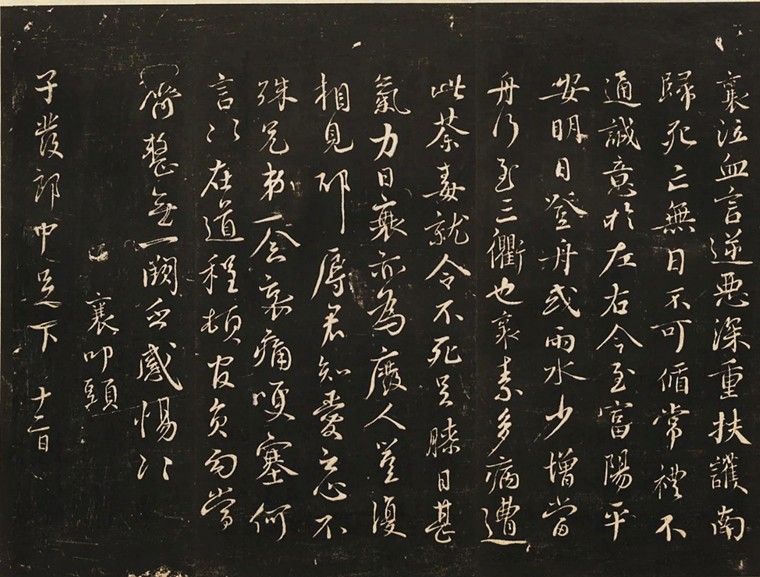 襄泣血言逆惡深重扶護南
歸死亡無日不可循常禮不
通誠意於左右今至富陽平
安明日登舟或雨水少增當
舟行至三衢也襄素多病遭
此荼毒就令不死足膝日甚
氣力日衰亦為廢人豈復
相見耶辱君知愛不
殊兄弟一念哀痛哽塞何
言〻在道程頓官員勾當
齊整無一闕乏感惕〻
襄叩頭
子發郎中足下 十二日